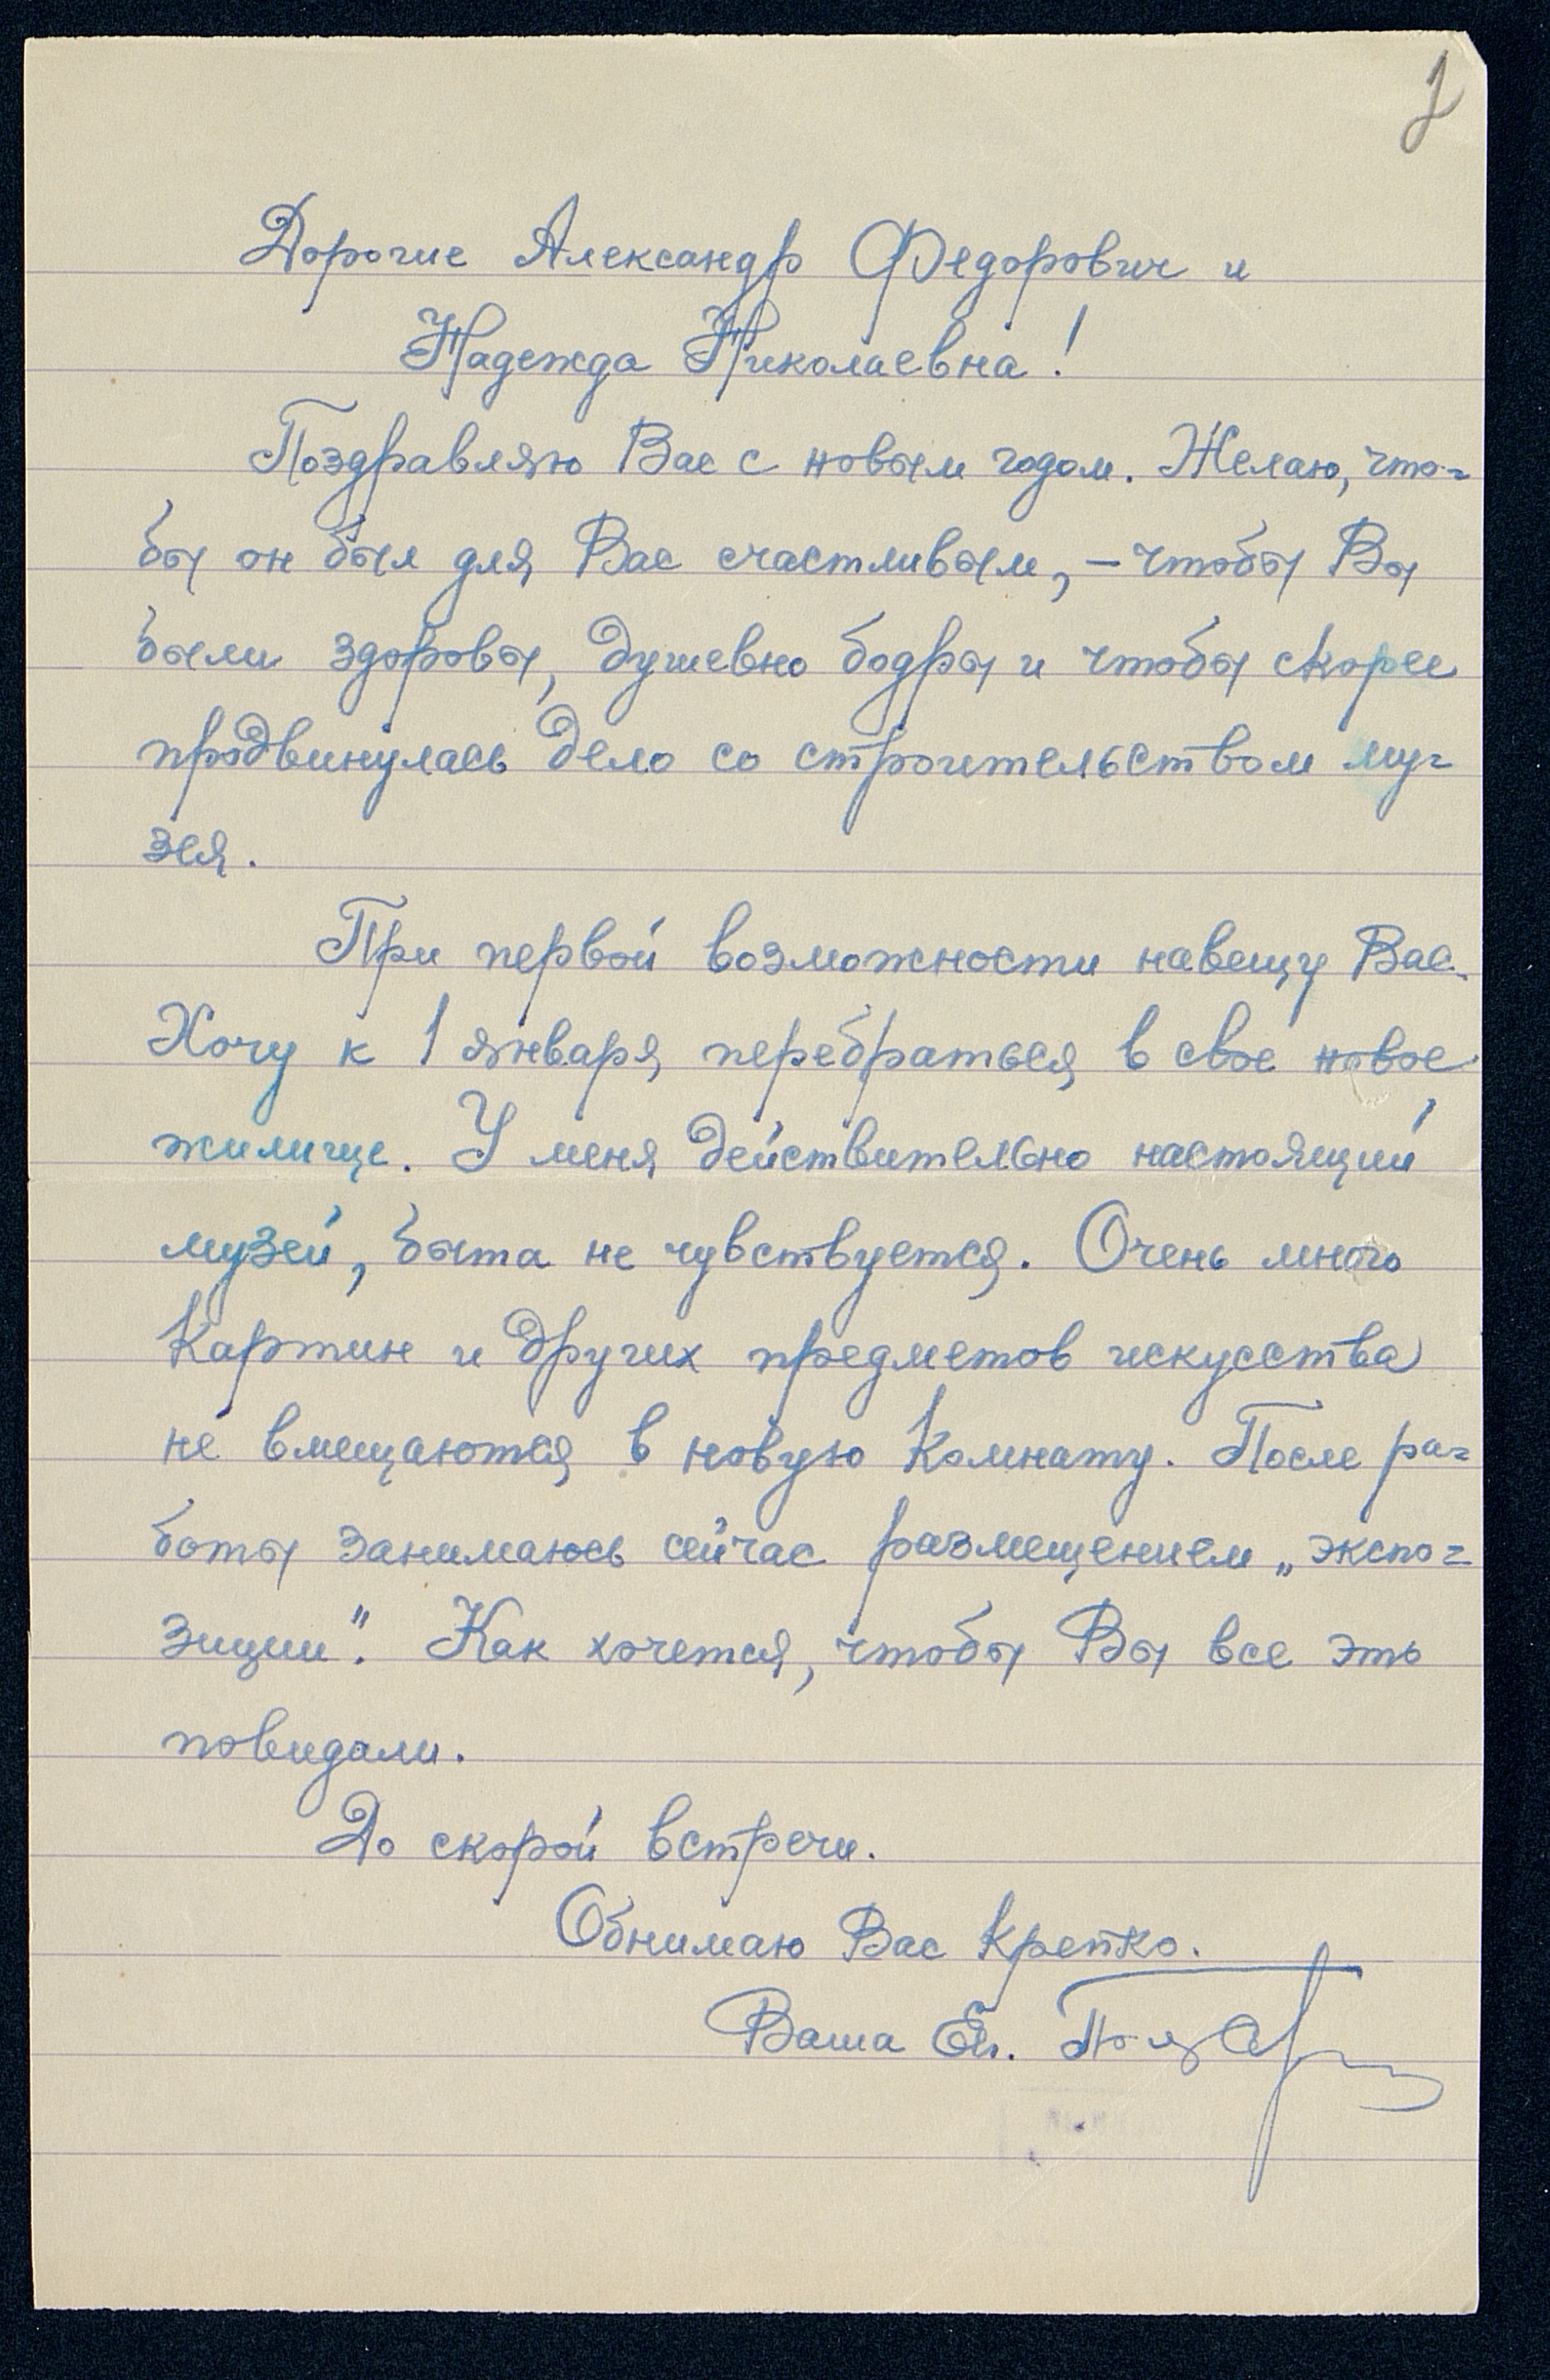 1
Дорогие Александр Федорович и
Надежда Николаевна!
Поздравляю Вас с новым годом. Желаю, что-
бы он был для Вас счастливым, – чтобы Вы
были здоровы, душевно бодры и чтобы скорее
продвинулась дело со строительством му-
зея.
При первой возможности навещу Вас.
Хочу к 1 января перебраться в свое новое
жилище. У меня действительно настоящий
музей, быта не чувствуется. Очень много
картин и других предметов искусства
не вмещаются в новую комнату. После ра-
боты занимаюсь сейчас размещением „экспо-
зиции". Как хочется, чтобы Вы все это
повидали.
До скорой встречи.
Обнимаю Вас крепко.
Ваша Ел.